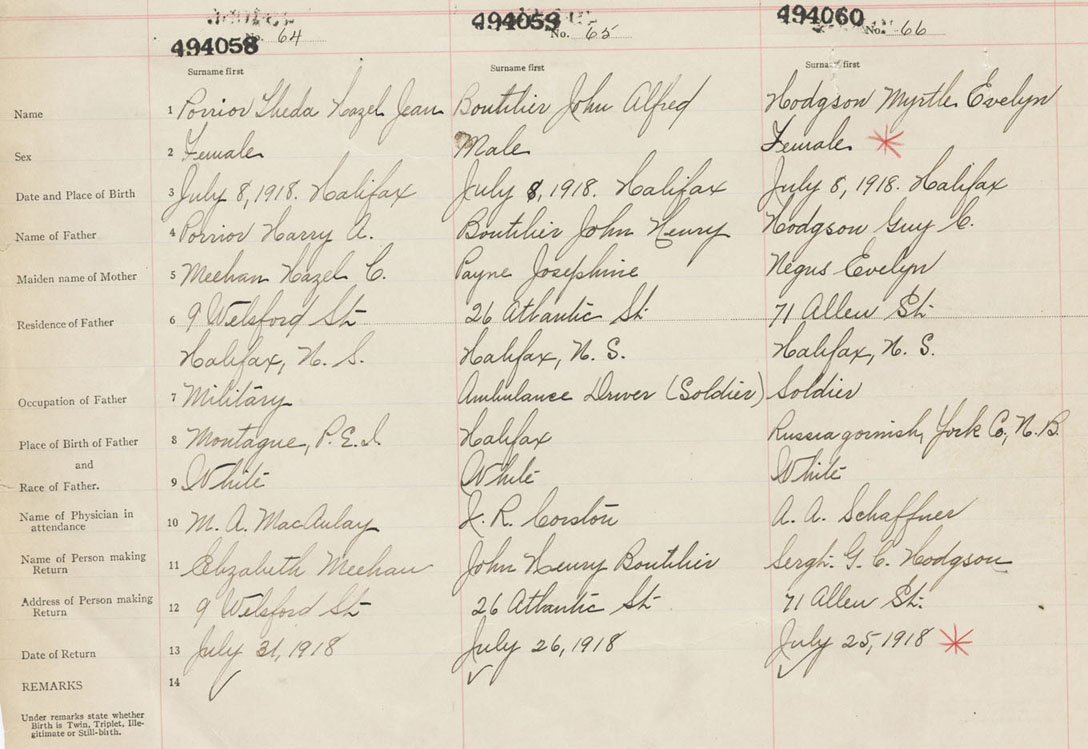 494058 No. 64 494059 No. 65 494060 No. 66
Surname first Surname first Surname first
Name 1 Porrior Theda Hazel Jean Boutilier John Alfred Hodgson Myrtle Evelyn
Sex 2 Female Male Female
Date and Place of Birth 3 July 8, 1918. Halifax July 8, 1918. Halifax July 8, 1918. Halifax
Name of Father 4 Porrior Harry A. Boutilier John Henry Hodgson Guy C.
Maiden name of Mother 5 Meehan Hazel C. Payne Josephine Negus Evelyn
Residence of Father 6 9 Welsford St. 26 Atlantic St. 71 Allen St.
Halifax, N. S. Halifax, N. S. Halifax, N. S.
Occupation of Father 7 Military Ambulance Driver (Soldier) Soldier
Place of Birth of Father 8 Montague, P.E.I Halifax Russiagornish, York Co., N.B.
and
Race of Father. 9 White White White
Name of Physician in
attendance 10 M. A. MacAulay J. R. Corston A. A. Schaffner
Name of Person making
Return 11 Elizabeth Meehan John Henry Boutilier Sergt. G. C. Hodgson
Address of Person making
Return 12 9 Welsford St. 26 Atlantic St. 71 Allen St.
Date of Return 13 July 31, 1918 July 26, 1918 July 25, 1918
REMARKS 14
Under remarks state whether
Birth is Twin, Triplet, Ille-
gitimate or Still-birth.